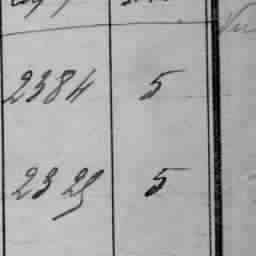 2384 5
2329 5